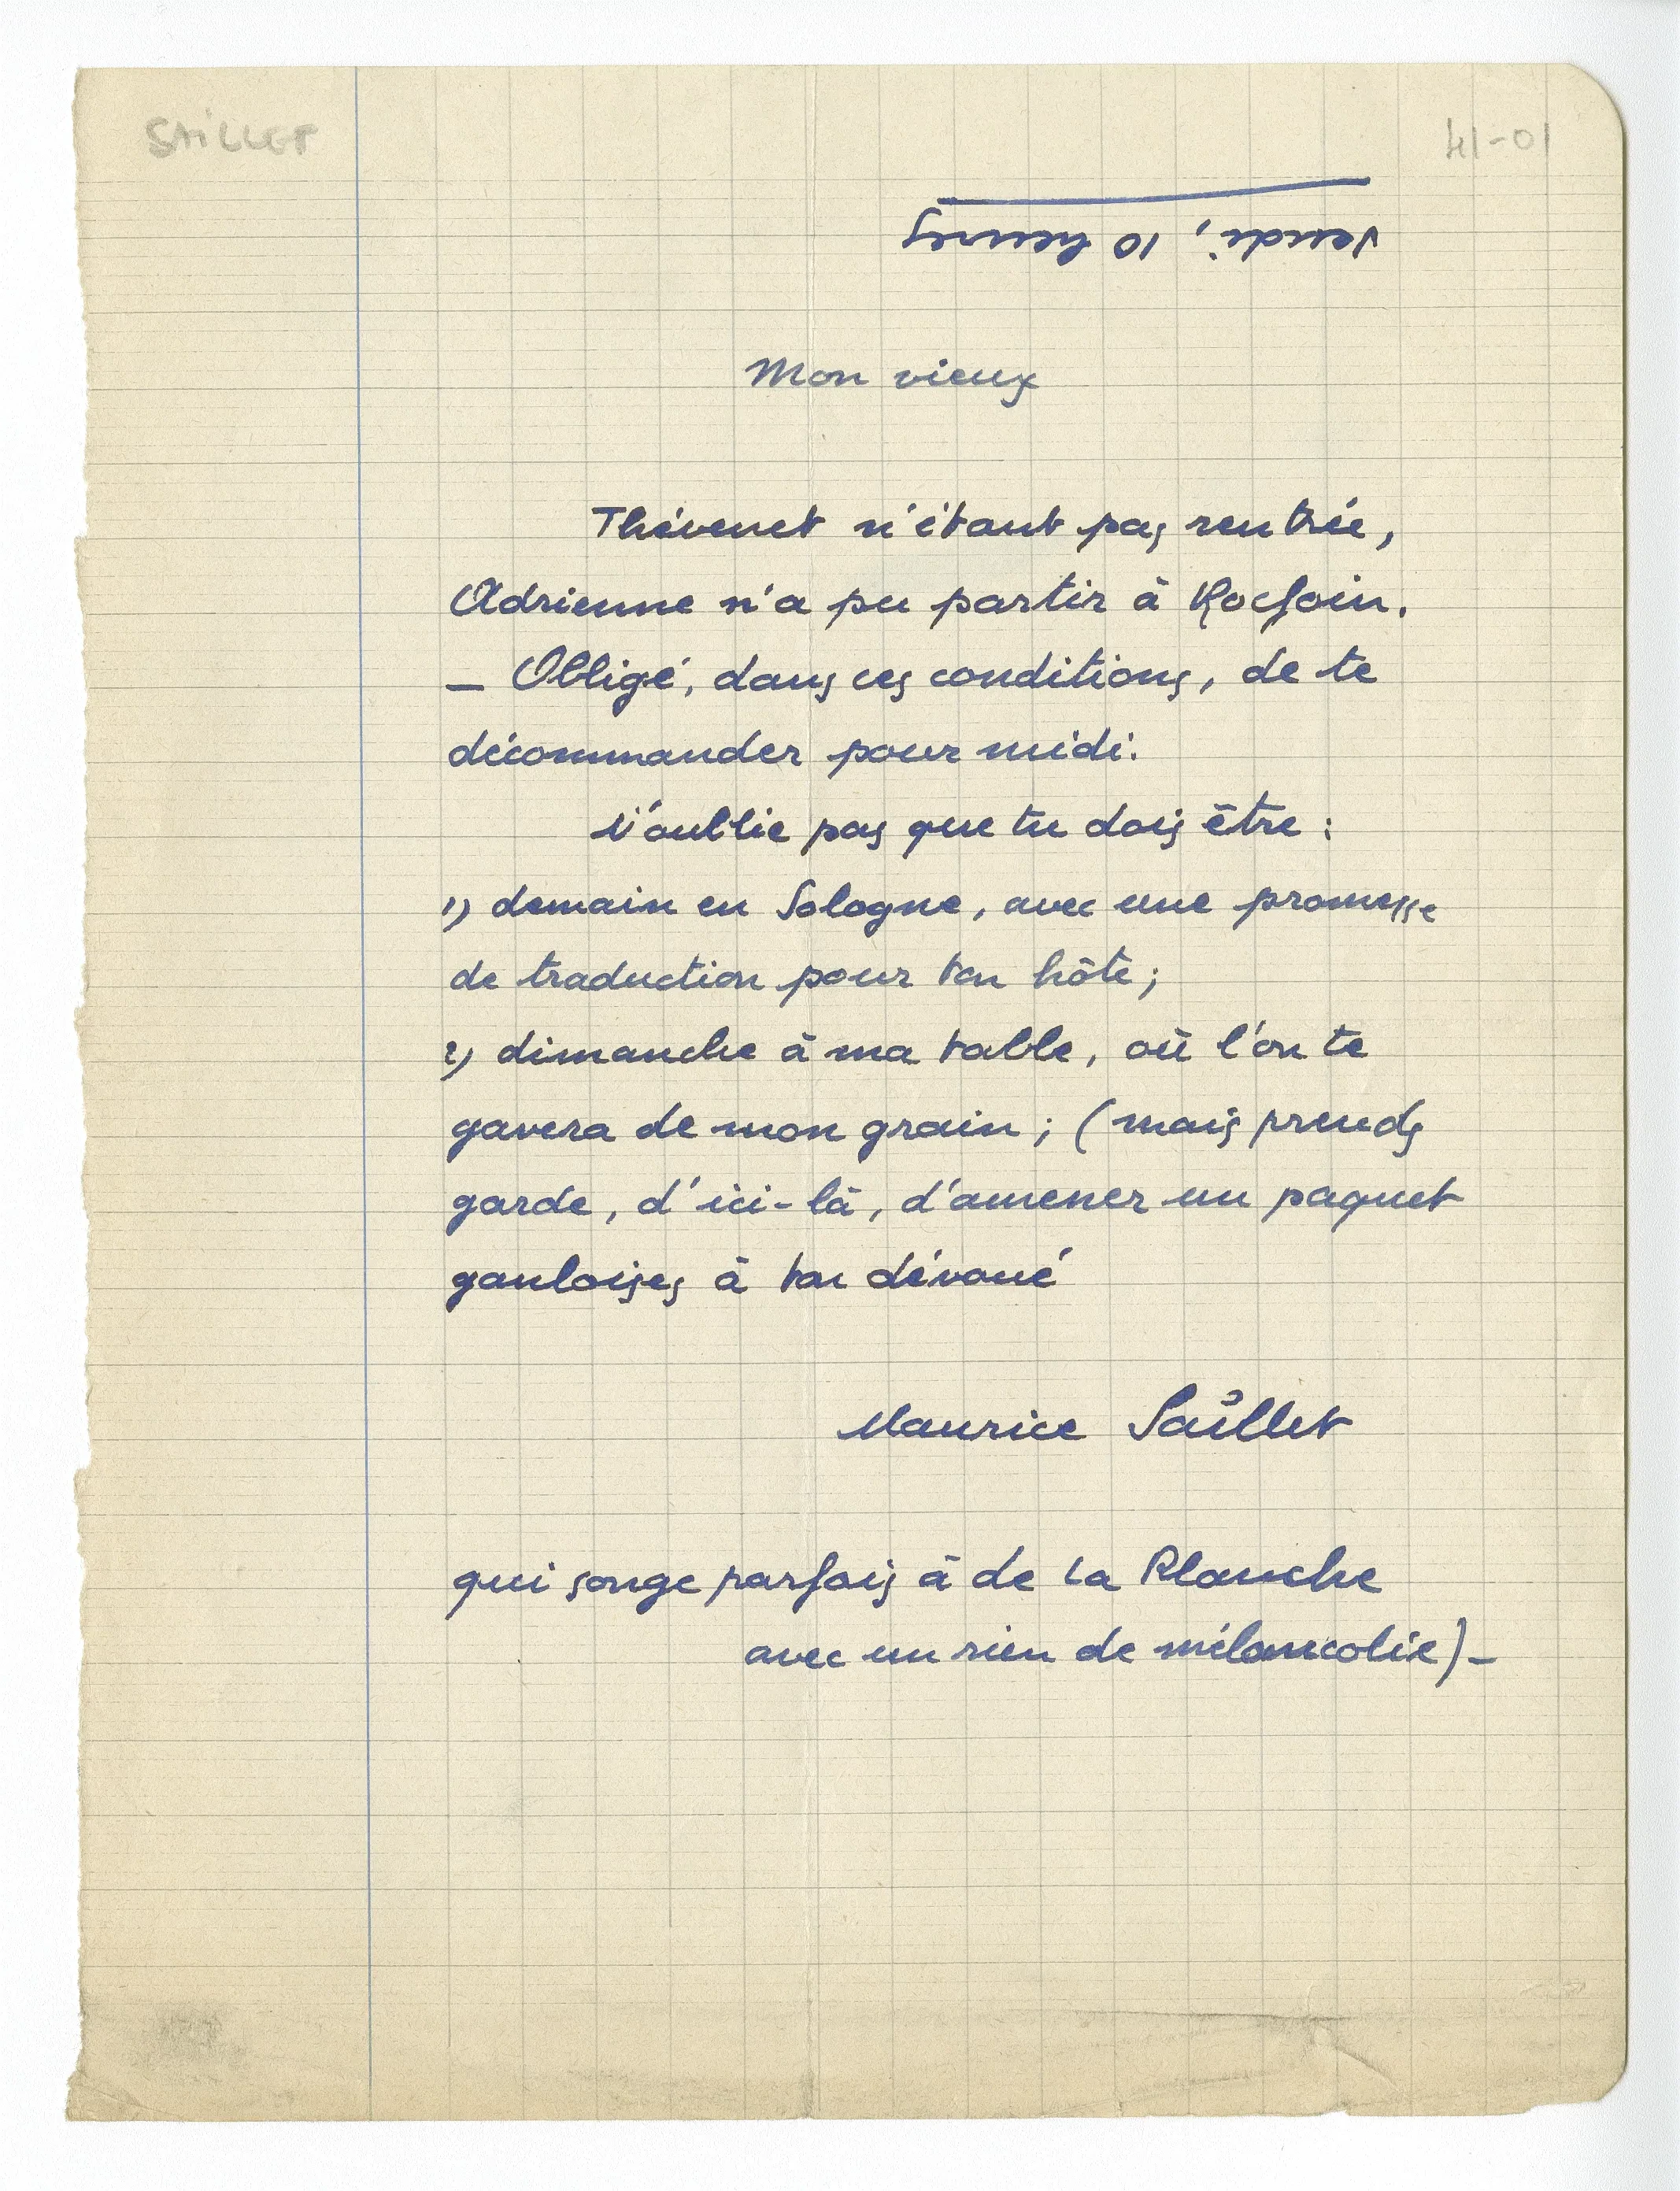 SAILLET
41-01
Vendi, 10 heures
Mon vieux
Thévenet n'étant pas rentrée,
Adrienne n'a pu partir à Rocfoin.
– Obligé, dans ces conditions, de te
décommander pour midi.
N'oublie pas que tu dois être :
1) demain en Sologne, avec une promesse
de traduction pour ton hôte ;
2) dimanche à ma table, où l'on te
gavera de mon grain ; (mais prends
garde, d'ici-là, d'amener un paquet
gauloises à ton dévoué
Maurice Saillet
qui songe parfois à de La Planche
avec un rien de mélancolie) –